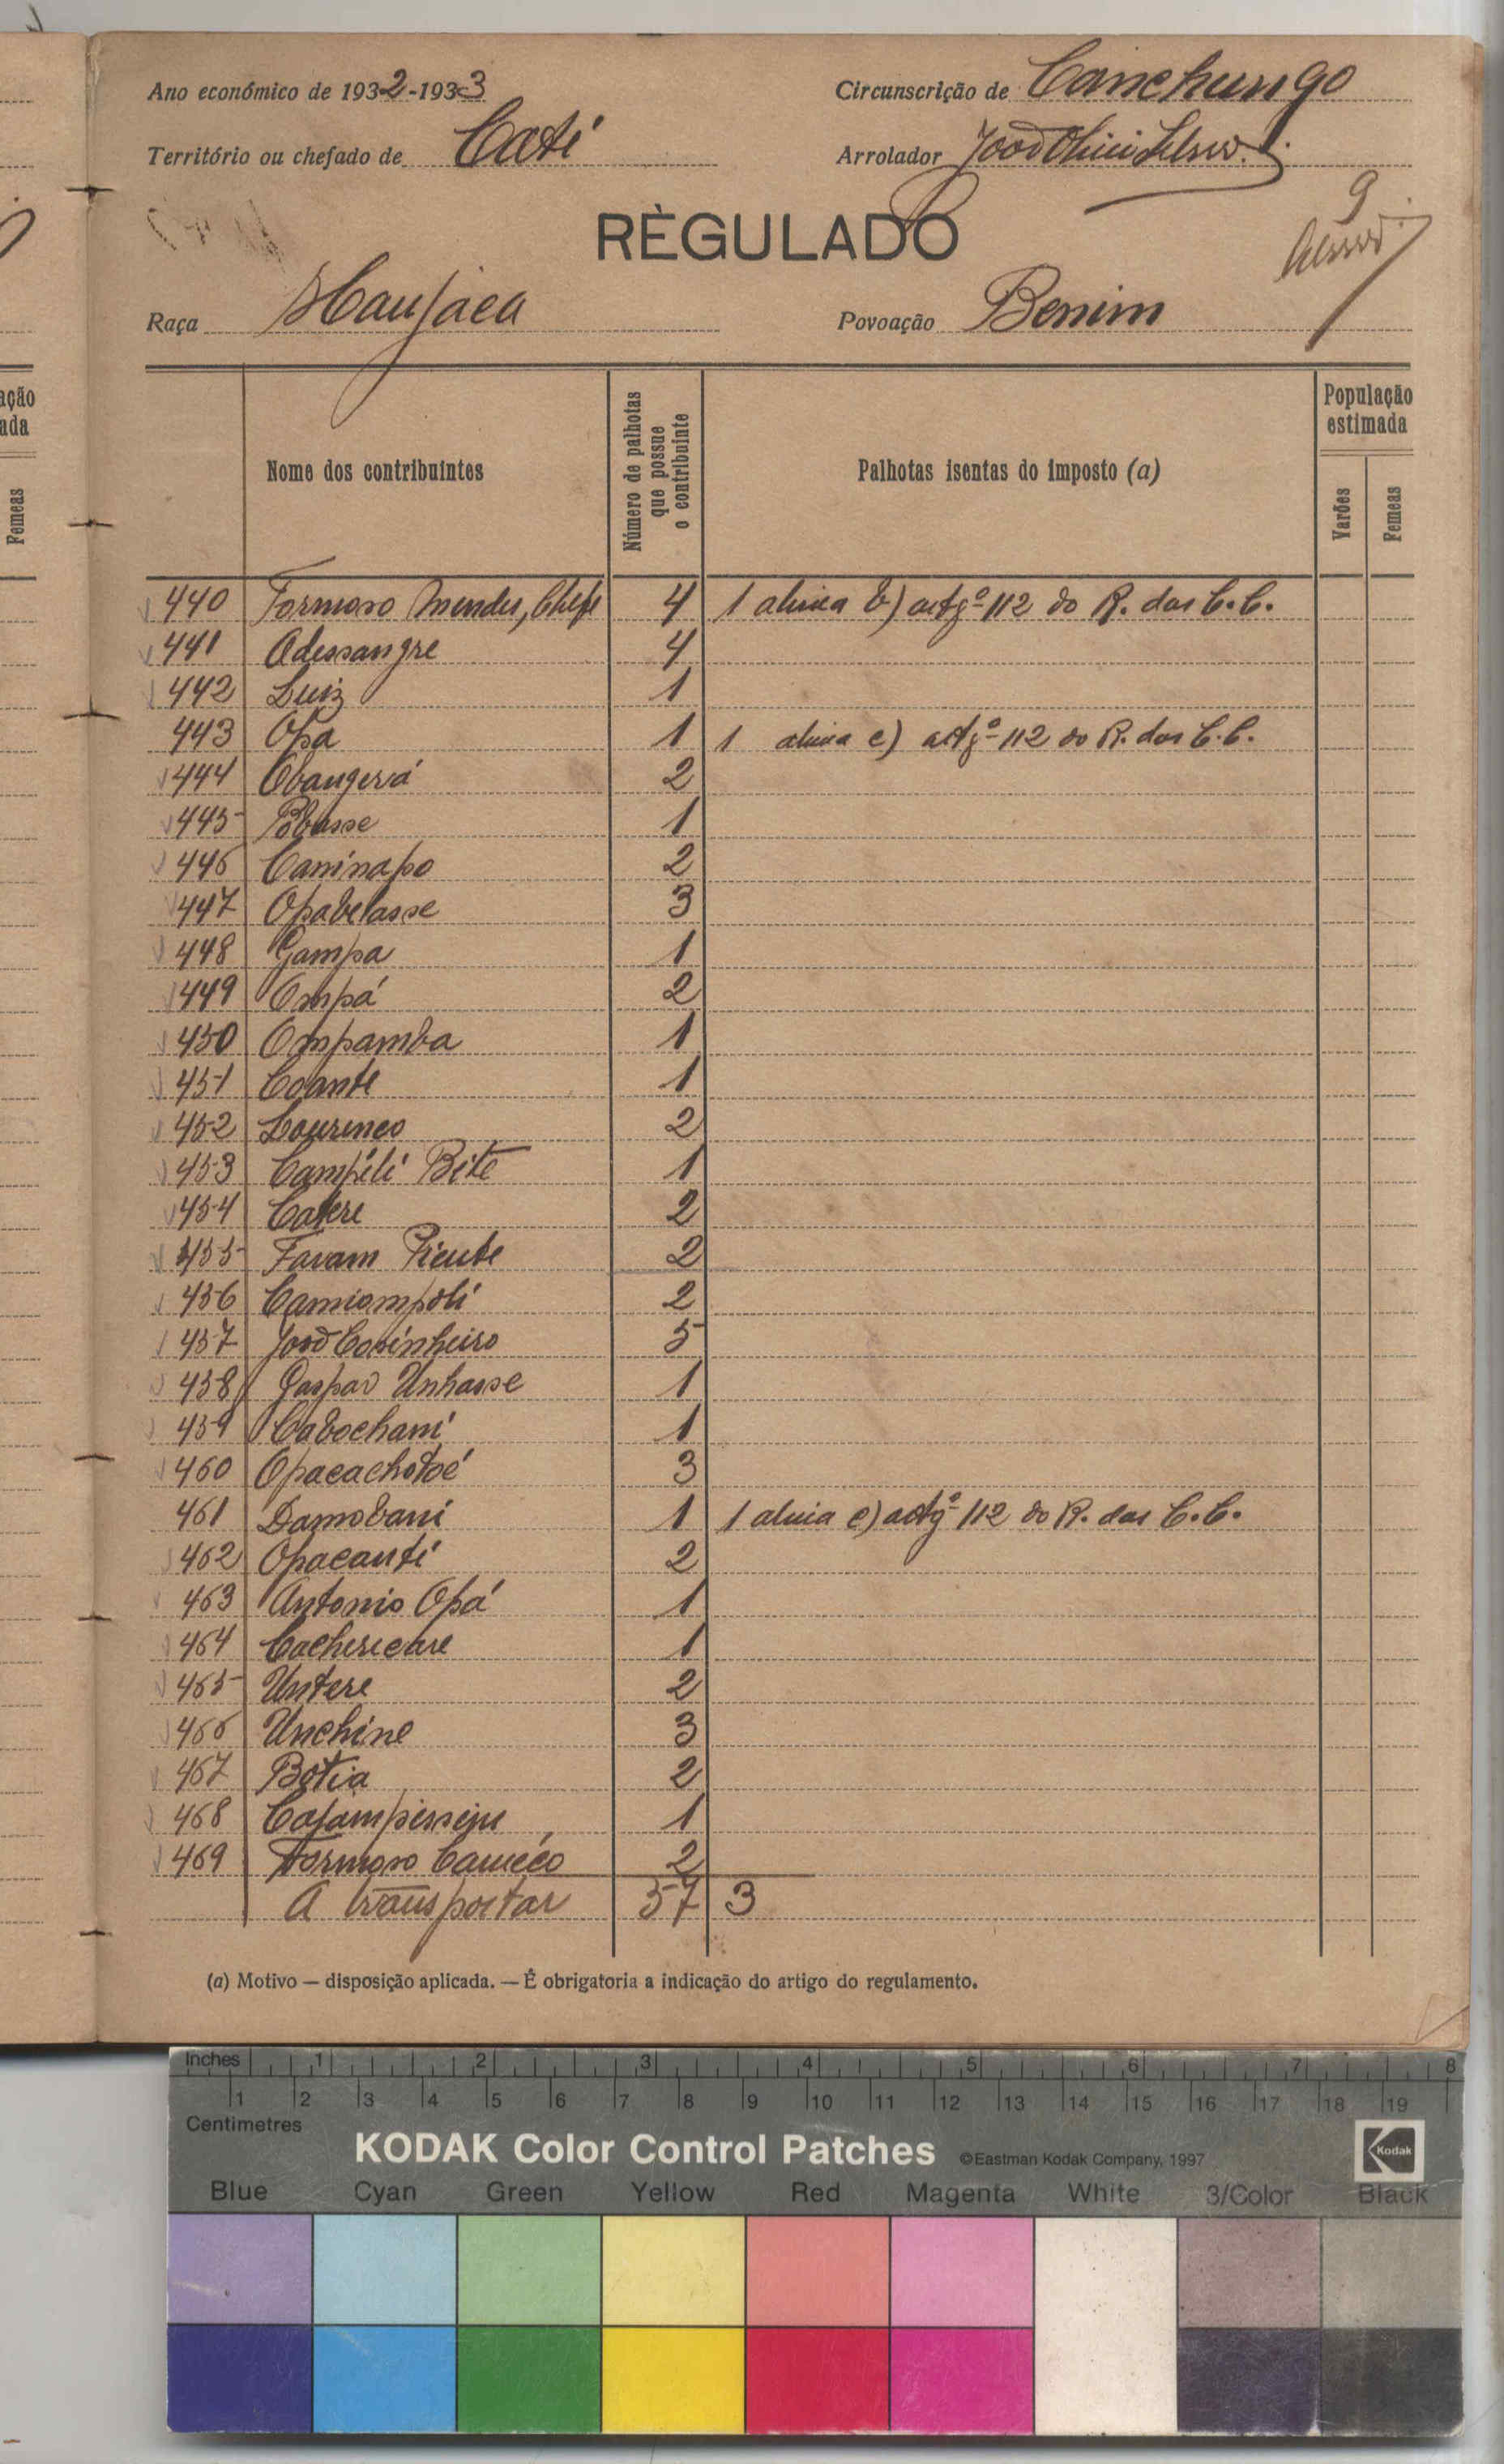 Ano económico de 1932-1933
Circunscrição de Canchungo
Território ou chefado de Cati
Arrolador João
9
RÈGULADO
Raça Manjaca
Povoação Benim
Nome dos contribuintes
Número de palhotas que possue o contribuinte
Palhotas isentas do imposto (a)
População estimada
Varões
Femeas
ação
ada
Femeas
440 Formoso Mendes, Chefe 4 1 alinea b) artgº 112 do R. das C.C.
441 Adessangre 4
442 Luiz 1
443 Opa 1 1 alinea c) artgº 112 do R. das C.C.
444 Obangerá 2
445 Pobasse 1
446 Caninapo 2
447 Opabelasse 3
448 Gampa 1
449 Ompá 2
450 Ompamba 1
451 Coante 1
452 Lourenco 2
453 Campili Bite 1
454 Catere 2
455 Favam Piente 2
456 Camiompoli 2
457 João Cosinheiro 5
458 Gaspar Unhasse 1
459 Cabochani 1
460 Opacachotoé 3
461 Damobani 1 1 alinea c) artgº 112 do R. das C.C.
462 Opacanti 2
463 Antonio Opá 1
464 Cacherecare 1
465 Untere 2
466 Unchine 3
467 Botia 2
468 1
469 Formoso Caméco 2
A transportar 57 3
(a) Motivo — disposição aplicada. — É obrigatoria a indicação do artigo do regulamento.
Inches 1 2 3 4 5 6 7 8
1 2 3 4 5 6 7 8 9 10 11 12 13 14 15 16 17 18 19
Centimetres
KODAK Color Control Patches ©Eastman Kodak Company, 1997 Kodak
Blue Cyan Green Yellow Red Magenta White 3/Color Black